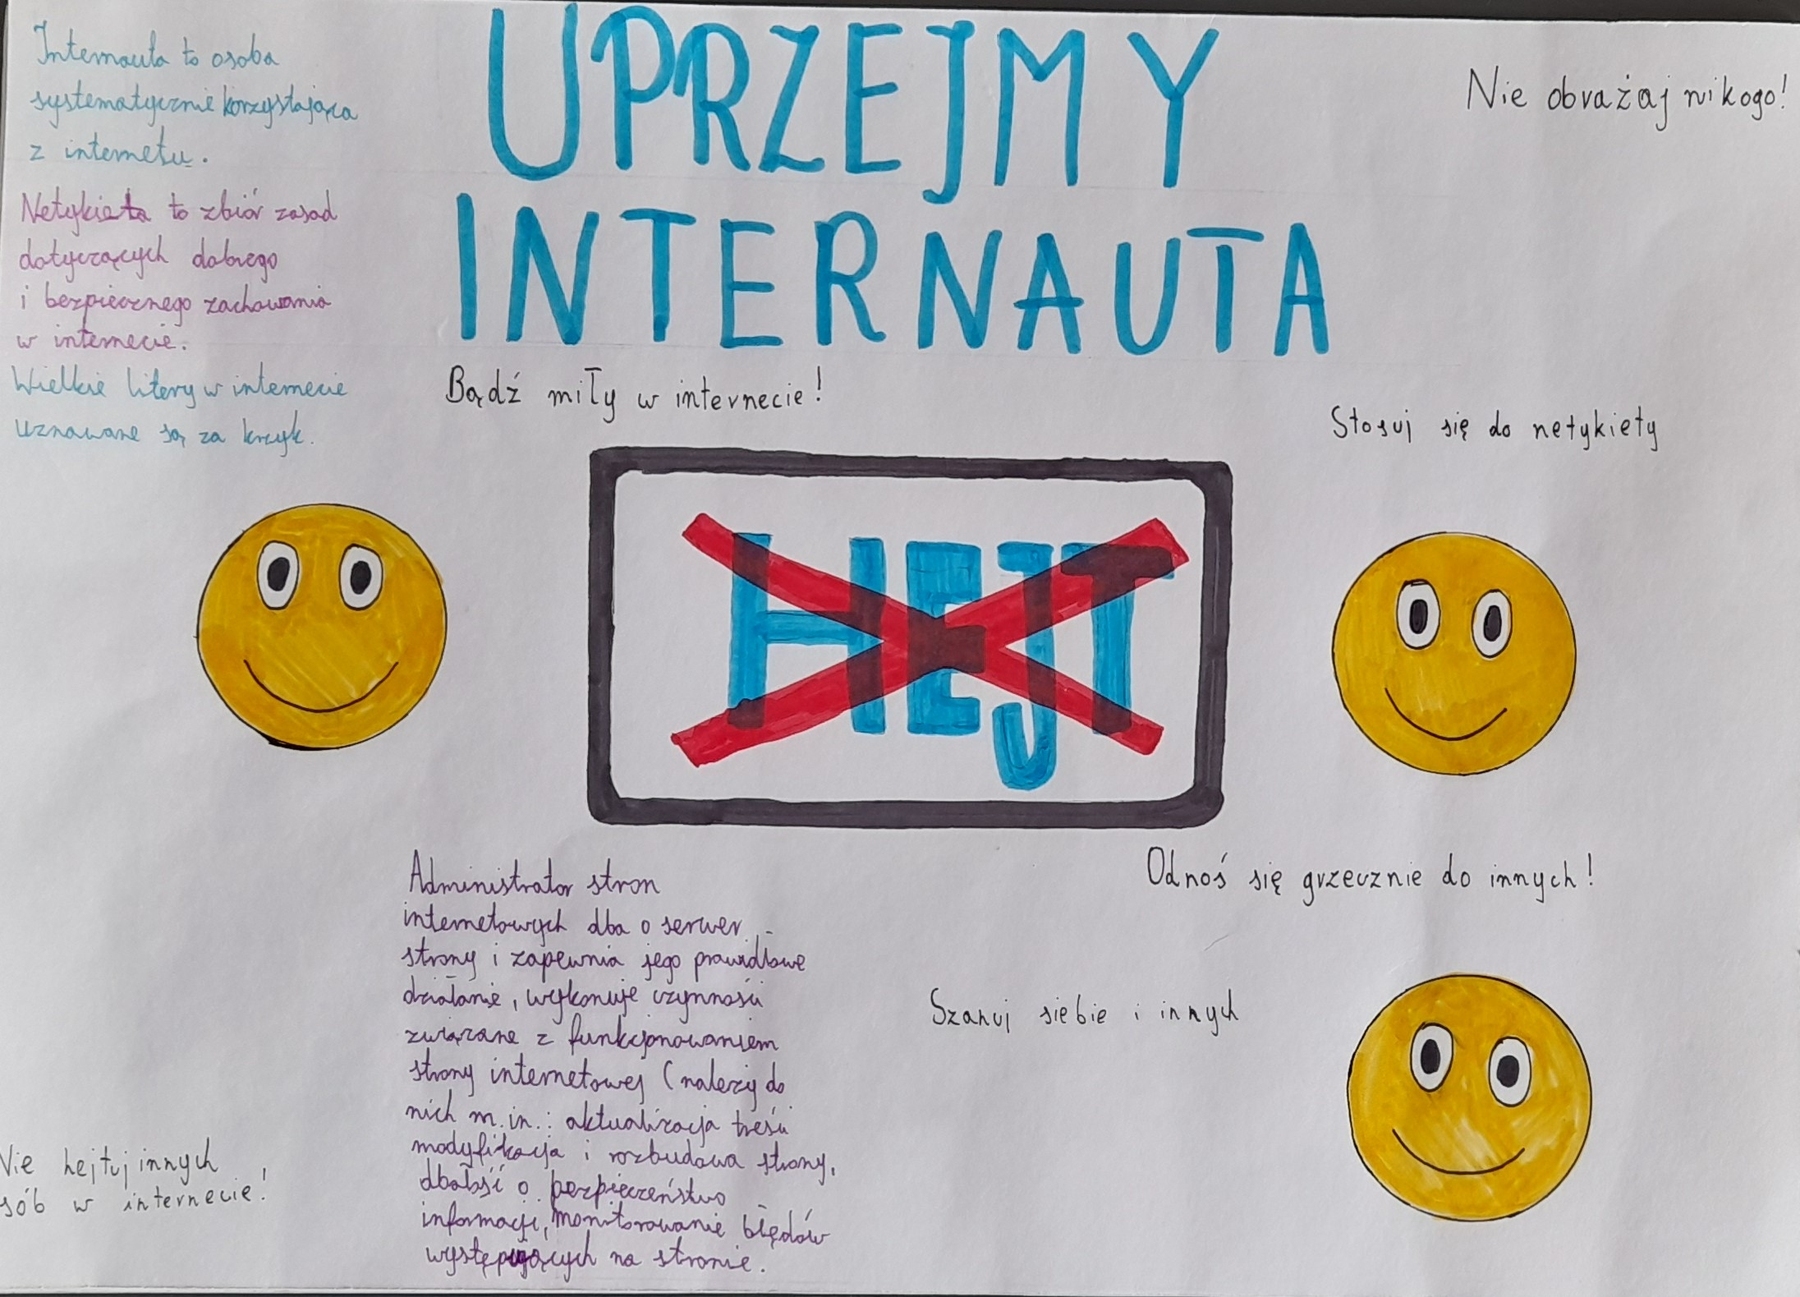 UPRZEJMY
INTERNAUTA
Internauta to osoba
systematycznie korzystająca
z internetu.
Netykieta to zbiór zasad
dotyczących dobrego
i bezpiecznego zachowania
w internecie.
Wielkie litery w internecie
uznawane są za krzyk.
Nie obrażaj nikogo!
Bądź miły w internecie!
Stosuj się do netykiety
HEJT
Odnoś się grzecznie do innych!
Szanuj siebie i innych
Administrator stron
internetowych dba o serwer
strony i zapewnia jego prawidłowe
działanie, wykonuje czynności
związane z funkcjonowaniem
strony internetowej (należy do
nich m.in.: aktualizacja treści
modyfikacja i rozbudowa strony,
dbałość o bezpieczeństwo
informacji, monitorowanie błędów
występujących na stronie.
Nie hejtuj innych
sób w internecie!